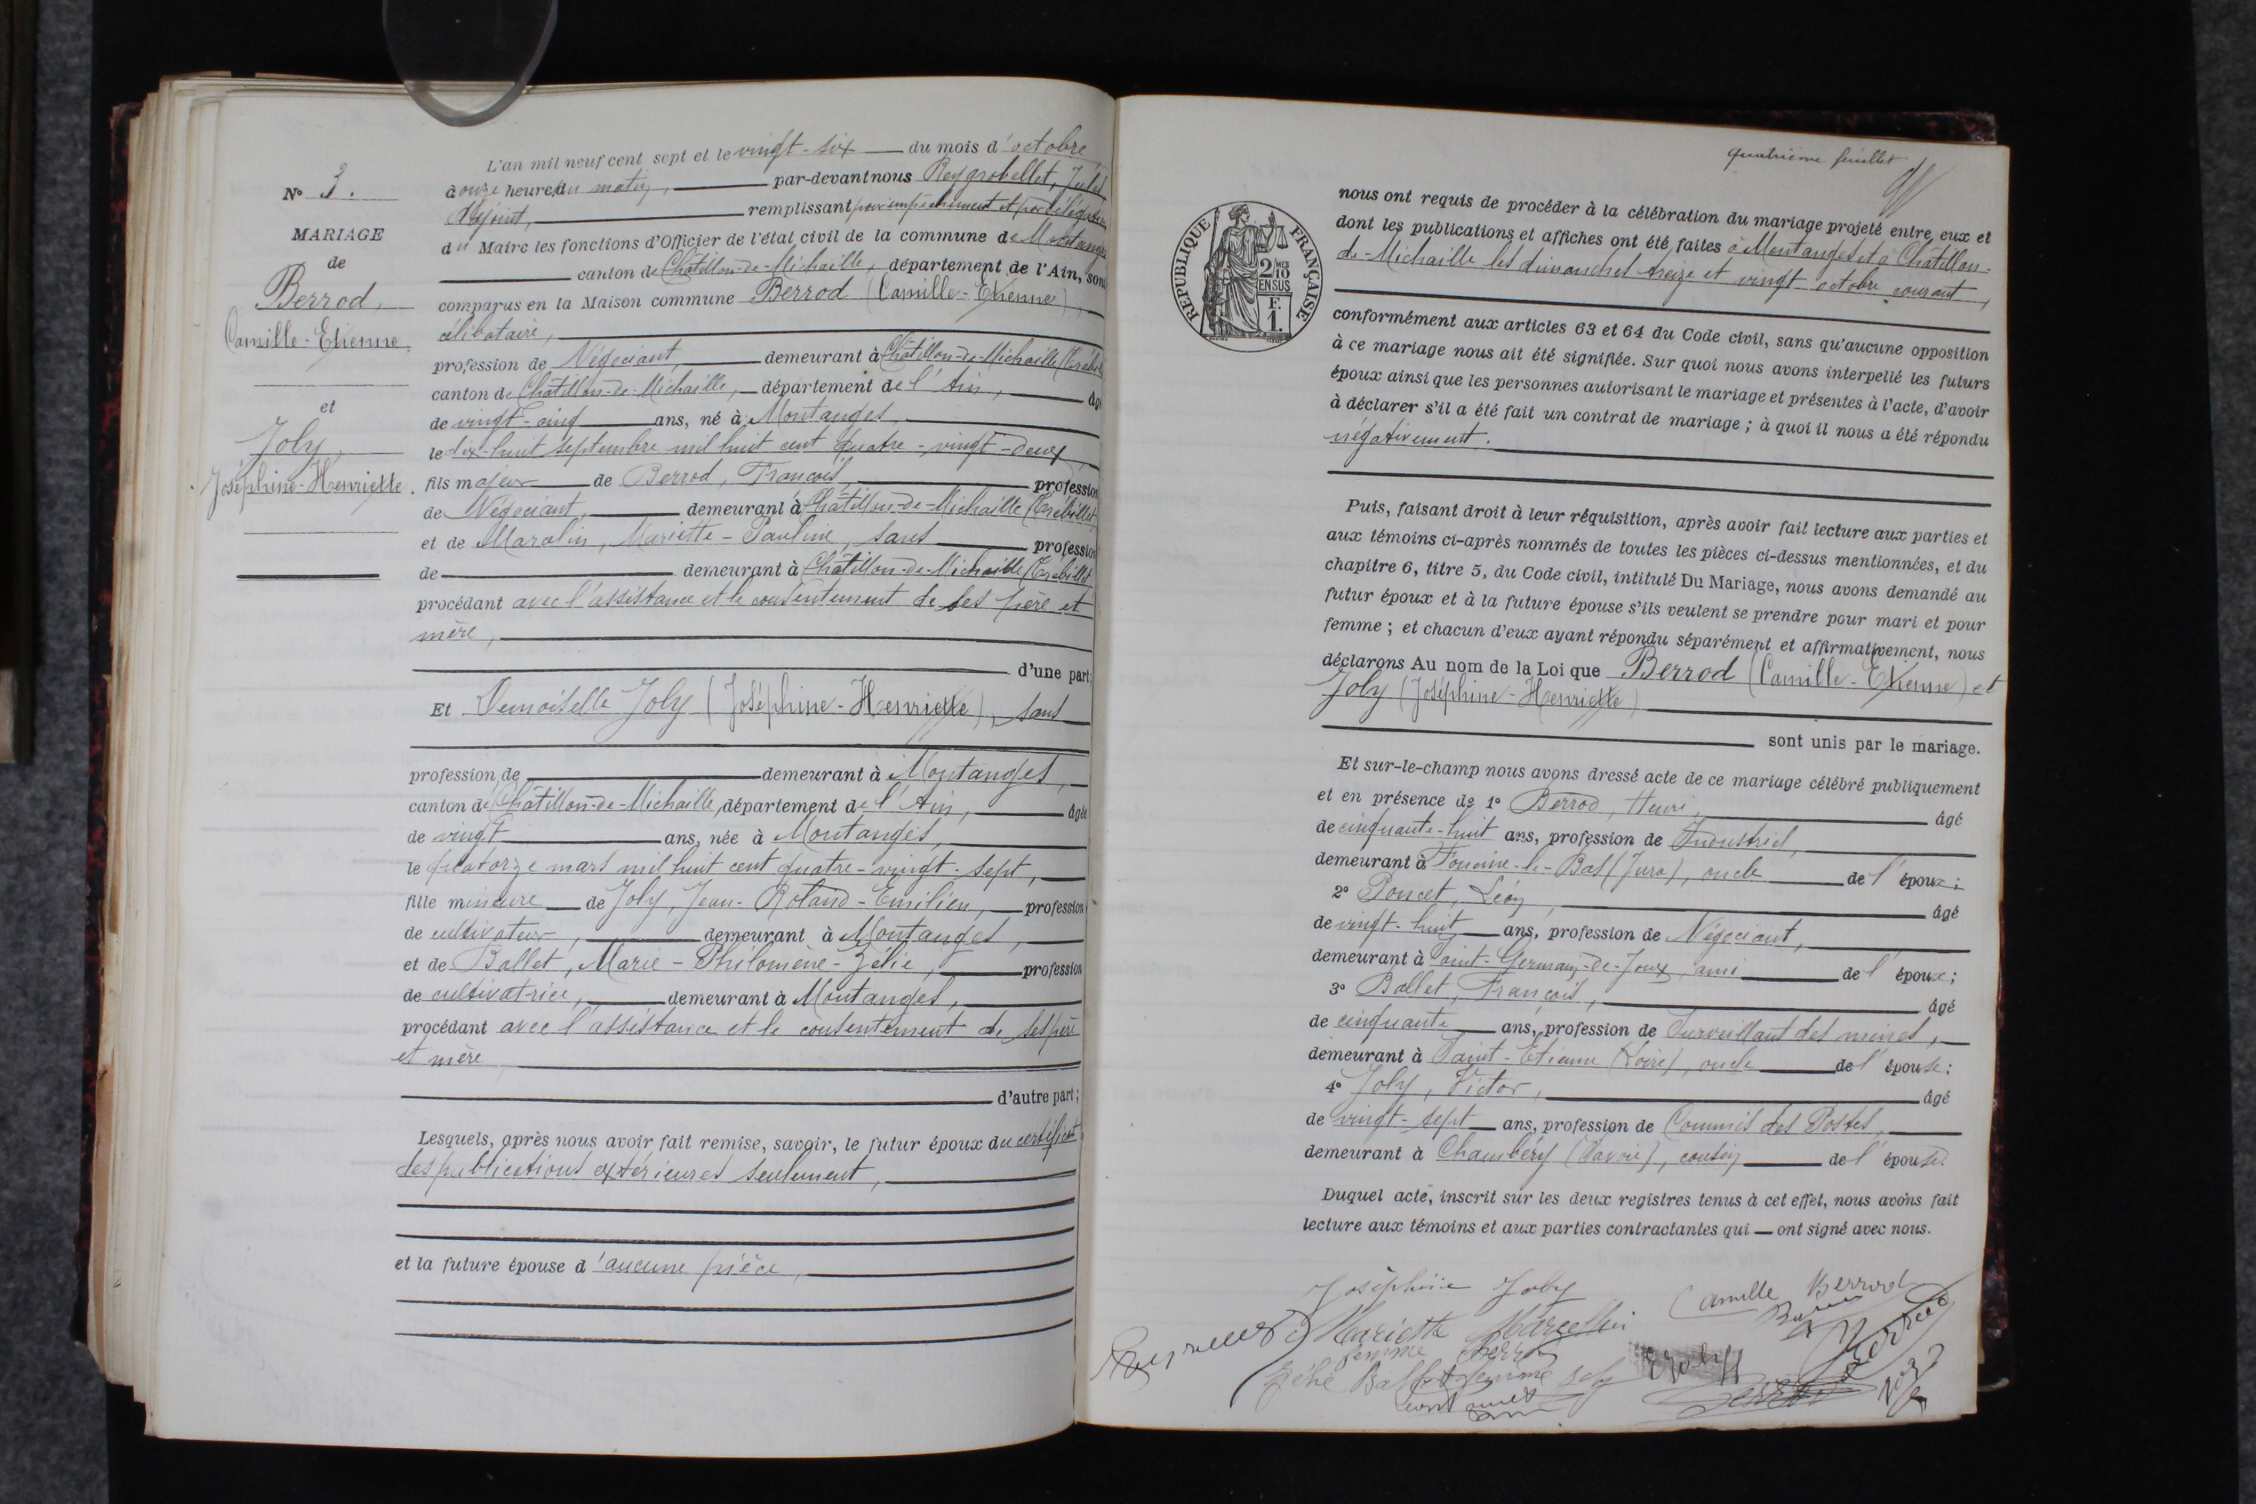 L'an mil neuf cent sept et le vingt-six du mois d'octobre
à onze heures du matin, par-devant nous Reygrobellet, Jules
Adjoint, remplissant par empêchement et par délégation
du Maire les fonctions d'Officier de l'état civil de la commune de Montanges
canton de Châtillon-de-Michaille, département de l'Ain, sont
comparus en la Maison commune Berrod (Camille-Etienne),
célibataire,
profession de Négociant, demeurant à Châtillon-de-Michaille
canton de Châtillon-de-Michaille, département de l'Ain, âgé
de vingt-cinq ans, né à Montanges,
le dix-huit septembre mil huit cent quatre-vingt-deux,
fils majeur de Berrod, François, profession
de Négociant, demeurant à Châtillon-de-Michaille (Trébillet
et de Mariette-Pauline, sans profession
de demeurant à Châtillon-de-Michaille (Trébillet
procédant avec l'assistance et le consentement de ses père et
mère,
d'une part;
Et Demoiselle Joly (Joséphine-Henriette), sans
profession de demeurant à Montanges,
canton de Châtillon-de-Michaille, département de l'Ain, âgée
de vingt ans, née à Montanges,
le quatorze mars mil huit cent quatre-vingt-sept,
fille mineure de Joly, Jean-Roland-Emilien, profession
de cultivateur, demeurant à Montanges,
et de Ballet, Marie-Philomène-Zélie, profession
de cultivatrice, demeurant à Montanges,
procédant avec l'assistance et le consentement de ses père
et mère
d'autre part;
Lesquels, après nous avoir fait remise, savoir, le futur époux du certificat
des publications extérieures seulement,
et la future épouse d'aucune pièce,
N° 3.
MARIAGE
de
Berrod,
Camille-Etienne.
et
Joly,
Joséphine-Henriette.
quatrième feuillet
RÉPUBLIQUE FRANÇAISE
2/10
EN SUS
F.
1.
nous ont requis de procéder à la célébration du mariage projeté entre eux et
dont les publications et affiches ont été faites à Montanges et à Châtillon-
de-Michaille les dimanches treize et vingt octobre courant,
conformément aux articles 63 et 64 du Code civil, sans qu'aucune opposition
à ce mariage nous ait été signifiée. Sur quoi nous avons interpellé les futurs
époux ainsi que les personnes autorisant le mariage et présentes à l'acte, d'avoir
à déclarer s'il a été fait un contrat de mariage; à quoi il nous a été répondu
négativement.
Puis, faisant droit à leur réquisition, après avoir fait lecture aux parties et
aux témoins ci-après nommés de toutes les pièces ci-dessus mentionnées, et du
chapitre 6, titre 5, du Code civil, intitulé Du Mariage, nous avons demandé au
futur époux et à la future épouse s'ils veulent se prendre pour mari et pour
femme; et chacun d'eux ayant répondu séparément et affirmativement, nous
déclarons Au nom de la Loi que Berrod (Camille-Etienne) et
Joly (Joséphine-Henriette)
sont unis par le mariage.
Et sur-le-champ nous avons dressé acte de ce mariage célébré publiquement
et en présence de 1° Berrod, Henri, âgé
de cinquante-huit ans, profession de Industriel,
demeurant à Foncine-le-Bas (Jura), oncle de l'époux;
2° Poncet, Léon, âgé
de vingt-huit ans, profession de Négociant,
demeurant à Saint-Germain-de-Joux, ami de l'époux;
3° Ballet, François, âgé
de cinquante ans, profession de Surveillant des mines,
demeurant à Saint-Etienne (Loire), oncle de l'épouse;
4° Joly, Victor, âgé
de vingt-sept ans, profession de Commis des Postes,
demeurant à Chambéry (Savoie), cousin de l'épouse.
Duquel acte, inscrit sur les deux registres tenus à cet effet, nous avons fait
lecture aux témoins et aux parties contractantes qui ont signé avec nous.
Joséphine Joly Camille Berrod
Mariette Marcellin
femme Berrod
Zélie Ballet femme Joly